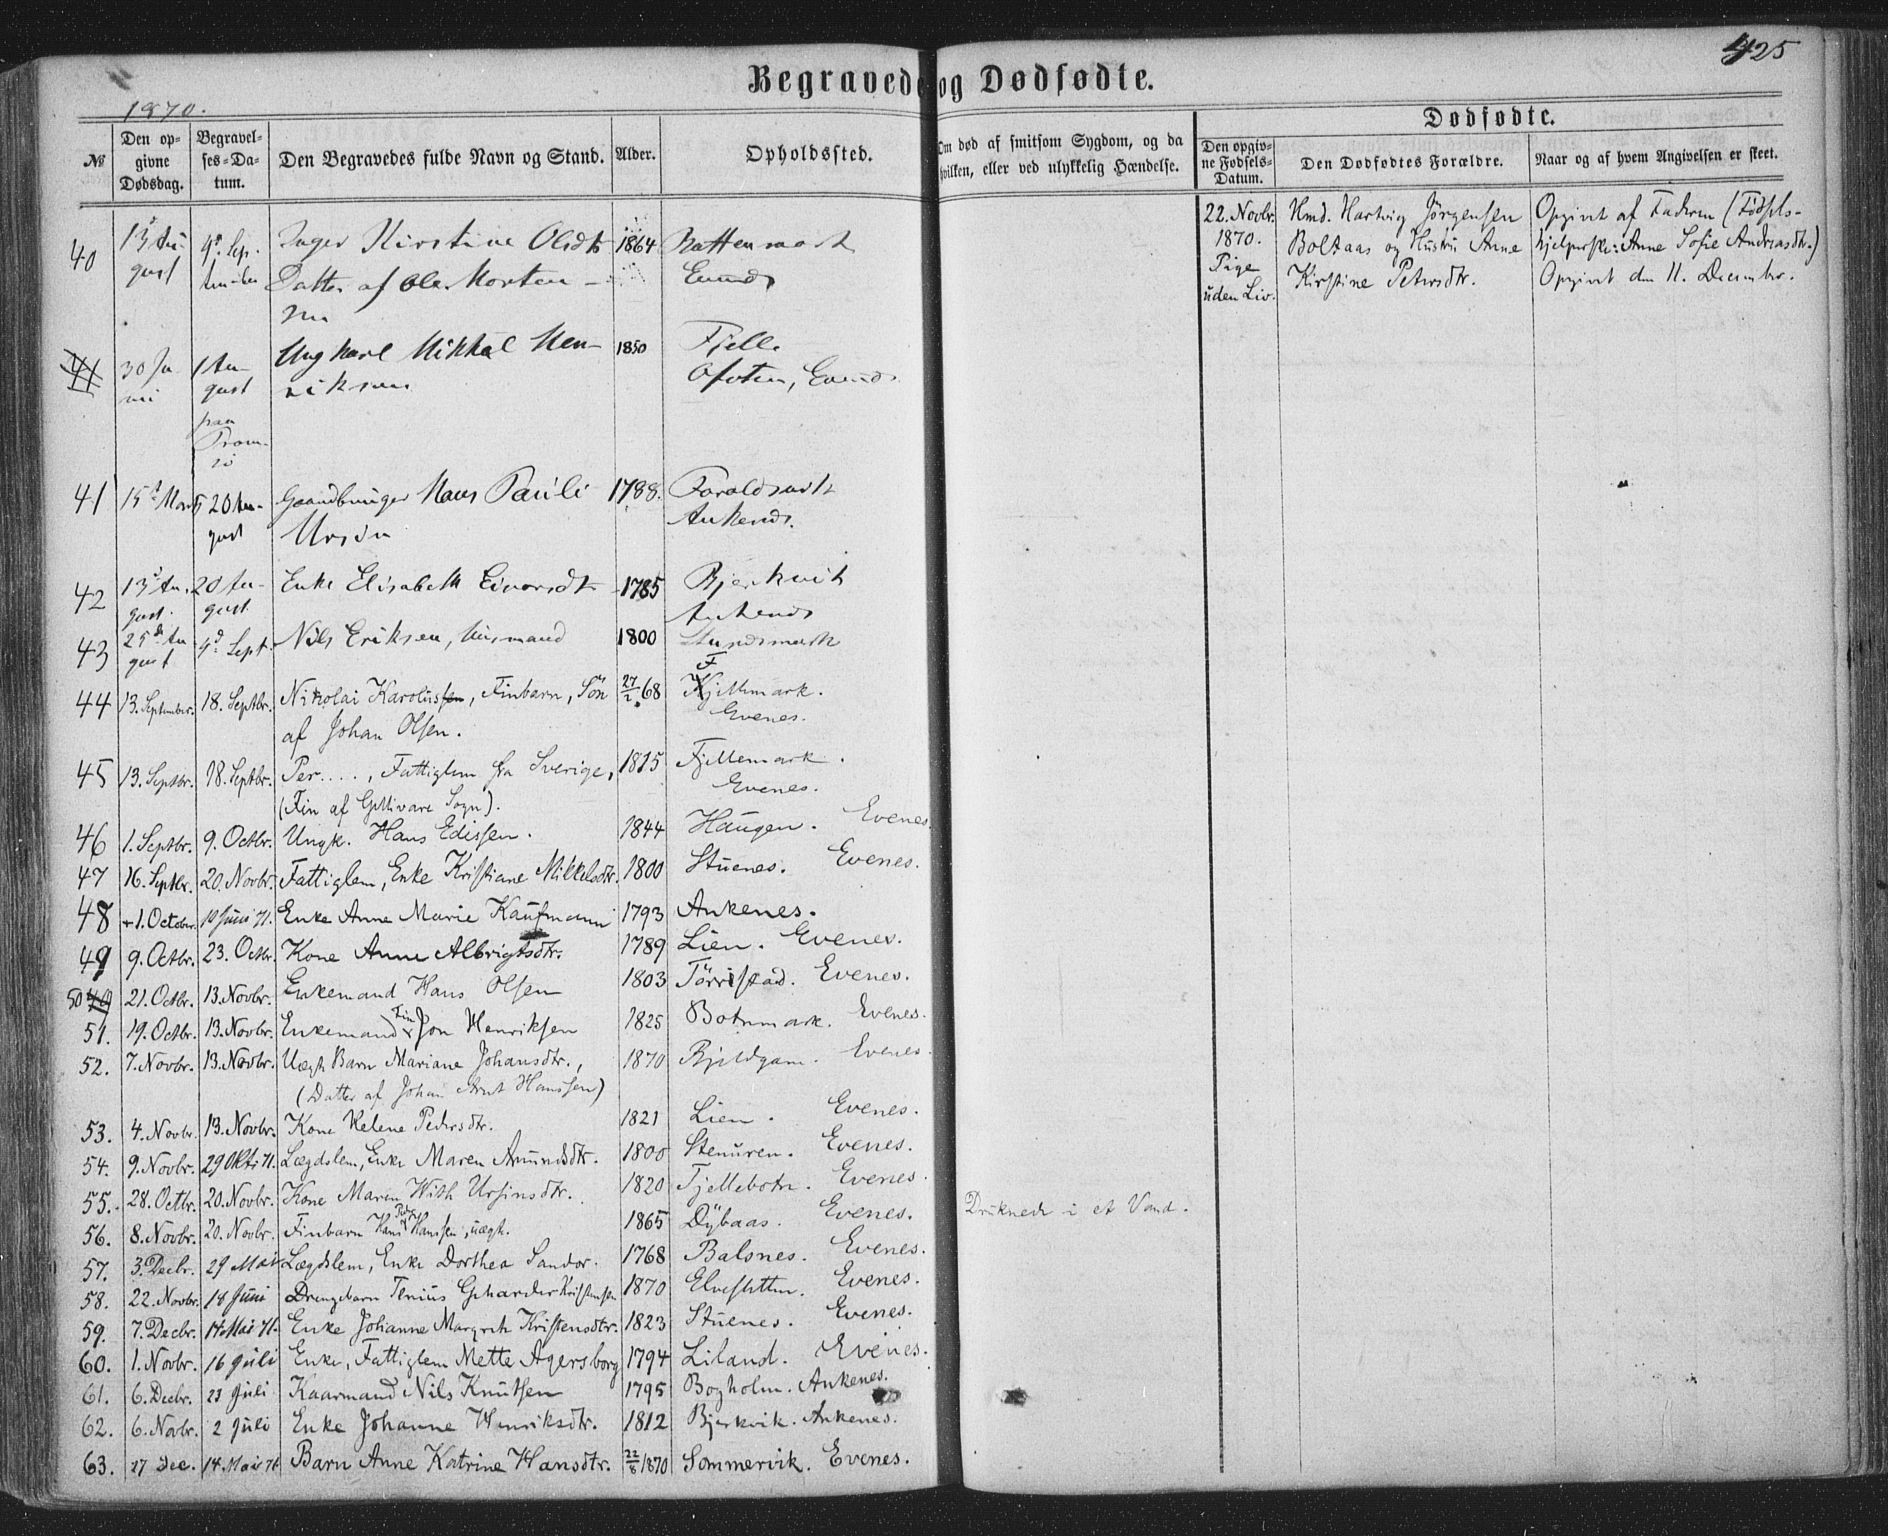 425
Begravede og Dødfødte.
1870.
Dødfødte.
№ Den opgivne Dødsdag. Begravelses-Datum. Den Begravedes fulde Navn og Stand. Alder. Opholdssted. Om død af smitsom Sygdom, og da hvilken, eller ved ulykkelig Hændelse. Den opgivne Fødsels-Datum. Den Dødfødtes Forældre. Naar og af hvem Angivelsen er skeet.
40 Inger Kirstine Olsdtr 1864
Datter af Ole Morten-
22. Novbr. Hmd. Hartvig Jørgensen Opgivet af Faderen (Fødsels-
1870. Boltaas og Hustru Anne hjelperske: Anne Sofie Andreasdtr.)
Pige Kirstine Petersdtr. Opgivet den 11. December.
uden Liv.
41 30 Ju 1 Au- Ungkarl Mikkal Hen- 1850 Fjeld
ni gust riksen Ofoten, Evenes
paa
Trom-
sö
41 15 20 Au- Hans Pauli 1788.
gust Ursin Ankenes.
42 13 Au- 20 Au- Enke Elisabeth Eivorsdtr 1785 Bjerkvik
gust. gust Ankenes
43 25 Au 4 Sept. Nils Eriksen, Husmand 1800
gust
44 13. September. 18. Septbr. Nikolai Karolussen, Finbarn, Sön 27/2 68 Fjellmark.
af Johan Olsen. Evenes.
45 13. Septbr. 18. Septbr. Per...., Fattiglem fra Sverige, 1815 Fjellemark.
(Fin af Gellivare Sogn). Evenes.
46 1. Septbr. 9. Octbr. Ungk. Hans Edissen. 1844 Haugen. Evenes.
47 16. Septbr. 20. Novbr. Fattiglem, Enke Kristiane Mikkelsdtr. 1800 Stuenes. Evenes.
48 1. October. 10 Juni 71. Enke Anne Marie Kaufmann 1793 Ankenes.
49 9. Octbr. 23. Octbr. Kone Anne Albrigtsdtr. 1789 Lien. Evenes.
50 21. Octbr. 13. Novbr. Enkemand Hans Olsen 1803 Törristad. Evenes.
51. 19. Octbr. 13. Novbr. Enkemand Fin Jon Henriksen 1825 Botnmark. Evenes.
52. 7. Novbr. 13. Novbr. Uægt. Barn Mariane Johansdtr., 1870 Evenes.
(Datter af Johan Arnt Hanssen)
53. 4. Novbr. 13. Novbr. Kone Helene Pedersdtr. 1821 Lien. Evenes.
54. 9. Novbr. 29 Okt 71. Lægdslem, Enke Maren Amundsdtr. 1800 Stenuren. Evenes.
55. 28. Octbr. 20. Novbr. Kone Maren With Ursinsdtr. 1820 Fjellebotn. Evenes.
56. 8. Novbr. 20. Novbr. Finbarn Hans Peder Hanssen, uægt. 1865 Dybaas. Evenes. Druknede i et Vand.
57. 3. Decbr. 29 Mai Lægdslem, Enke Dorthea Sandor. 1768 Balsnes. Evenes.
58. 22. Novbr. 18 Juni Drengebarn Tenius Gerharder Kristensen 1870 Elvesletten. Evenes.
59. 7. Decbr. 14 Mai 71. Enke Johanne Margreth Kristensdtr. 1823 Stuenes. Evenes.
60. 1. Novbr. 16 Juli Enke, Fattiglem Mette Agersborg 1794 Liland. Evenes.
61. 6. Decbr. 23 Juli Kaarmand Nils Knutsen 1795 Bogholm. Ankenes.
62. 6. Novbr. 2 Juli Enke Johanne Henriksdtr. 1812 Bjerkvik. Ankenes.
63. 17 Dec. 14 Mai 71 Barn Anne Katrine Hansdtr. 22/8 1870 Sommervik. Evenes.